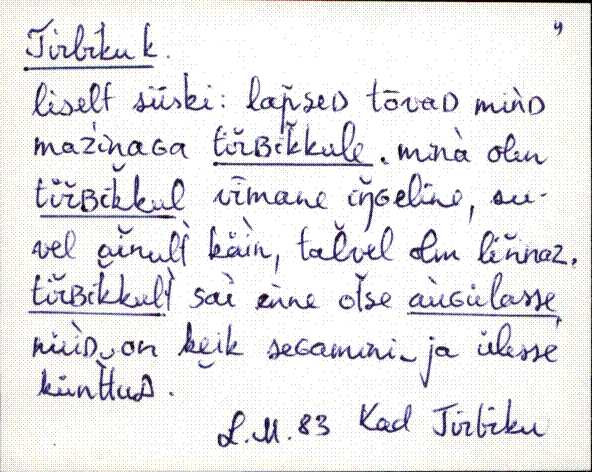 4
Tirbiku k.
liselt sīski: lap̆sed tōvaD mìnD
maz̀inaGa tĭrBĭk̆kule. minà olen
tĭrBĭk̆kul vīmane iŋ̆Geline, su-
vel ăinult̀ käìn, tal̆vel olen lin̆naz.
tĭrBĭk̆kult̀ saì enne ot̆se aùGùlasse,
nüìD‿on kĕik seGamini‿ja ülessè
künttuD.
L.M. 83 Kad Tirbiku